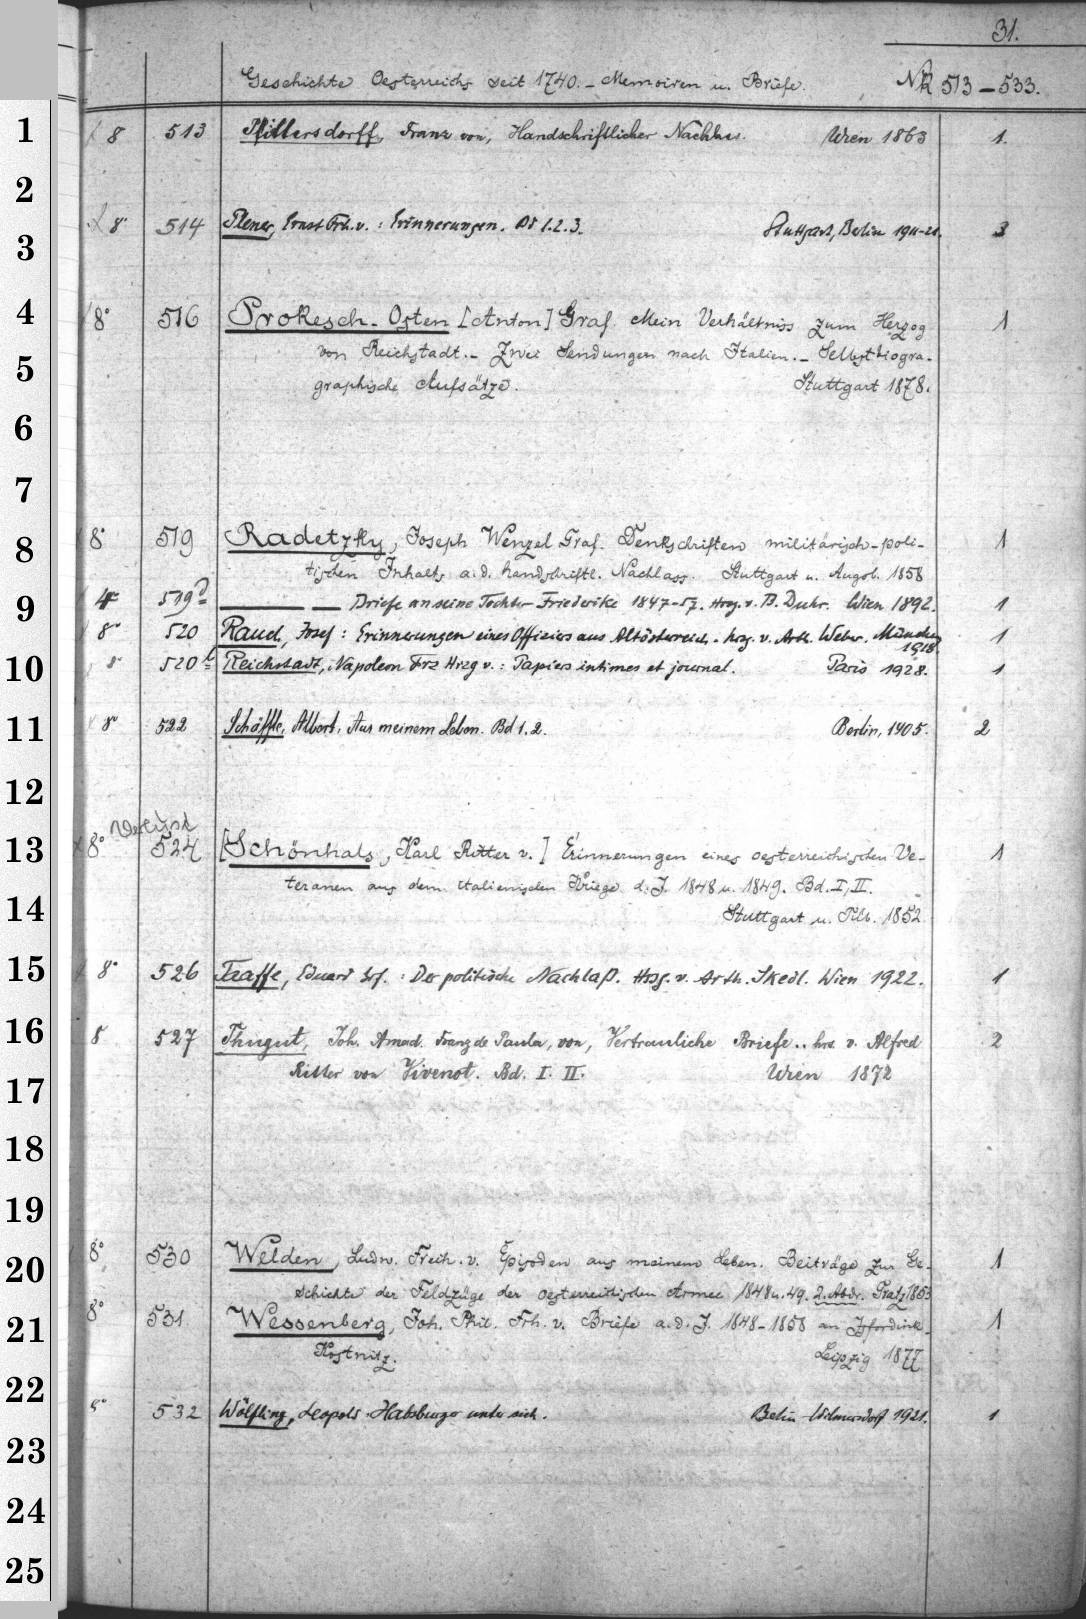 31.
Geschichte Oesterreichs seit 1740. - Memoiren u. Briefe. NR 513-533.
1 8 513 Pillersdorff, Franz von, Handschriftlicher Nachlass. Wien 1863 1.
2
3 8° 514 Plener, Ernst Frh. v. : Erinnerungen. Bd 1.2.3. Stuttgart, Berlin 1911-21. 3
4 8° 516 Prokesch-Osten [Anton] Graf. Mein Verhältniss zum Herzog 1
5 von Reichstadt. - Zwei Sendungen nach Italien. - Selbstbiogra-
graphische Aufsätze. Stuttgart 1878.
6
7
8 8° 519 Radetzky, Joseph Wenzel Graf. Denkschriften militärisch-poli- 1
tischen Inhalts a.d. handschriftl. Nachlass. Stuttgart u. Augsb. 1858
9 4° 519 Briefe an seine Tochter Friederike 1847-57. Hrsg. v. B. Duhr. Wien 1892. 1
8° 520 Rauch, Josef : Erinnerungen eines Offiziers aus Altösterreich. hrsg. v. Arth. Weber. München 1
1918.
10 8° 520 b Reichstadt, Napoleon Frz Hrzg v. : Papiers intimes et journal. Paris 1928. 1
11 8° 522 Schäffle, Albert. Aus meinem Leben. Bd 1.2. Berlin, 1905. 2
12
Verlust
13 8° 524 [Schönhals, Karl Ritter v.] Erinnerungen eines oesterreichischen Ve- 1
teranen aus dem italienischen Kriege d. J. 1848 u. 1849. Bd. I, II.
14 Stuttgart u. Tüb. 1852
15 8° 526 Taaffe, Eduard Grf. : Der politische Nachlaß. Hrsg. v. Arth. Skedl. Wien 1922. 1
16 8 527 Thugut, Joh. Amad. Franz de Paula, von, Vertrauliche Briefe.. hrs. v. Alfred 2
17 Ritter von Vivenot. Bd. I. II. Wien 1872
18
19
20 8° 530 Welden, Ludw. Freih. v. Episoden aus meinem Leben. Beiträge zur Ge- 1
schichte der Feldzüge der oesterreichischen Armee 1848 u. 49. 2. Abdr. Gratz 1853
21 8° 531 Wessenberg, Joh. Phil. Frh. v. Briefe a.d. J. 1848-1858 an Isfordink- 1
Kostnitz. Leipzig 1877
22 8° 532 Wölfling, Leopold. Habsburger unter sich. Berlin-Wilmersdorf 1921. 1
23
24
25